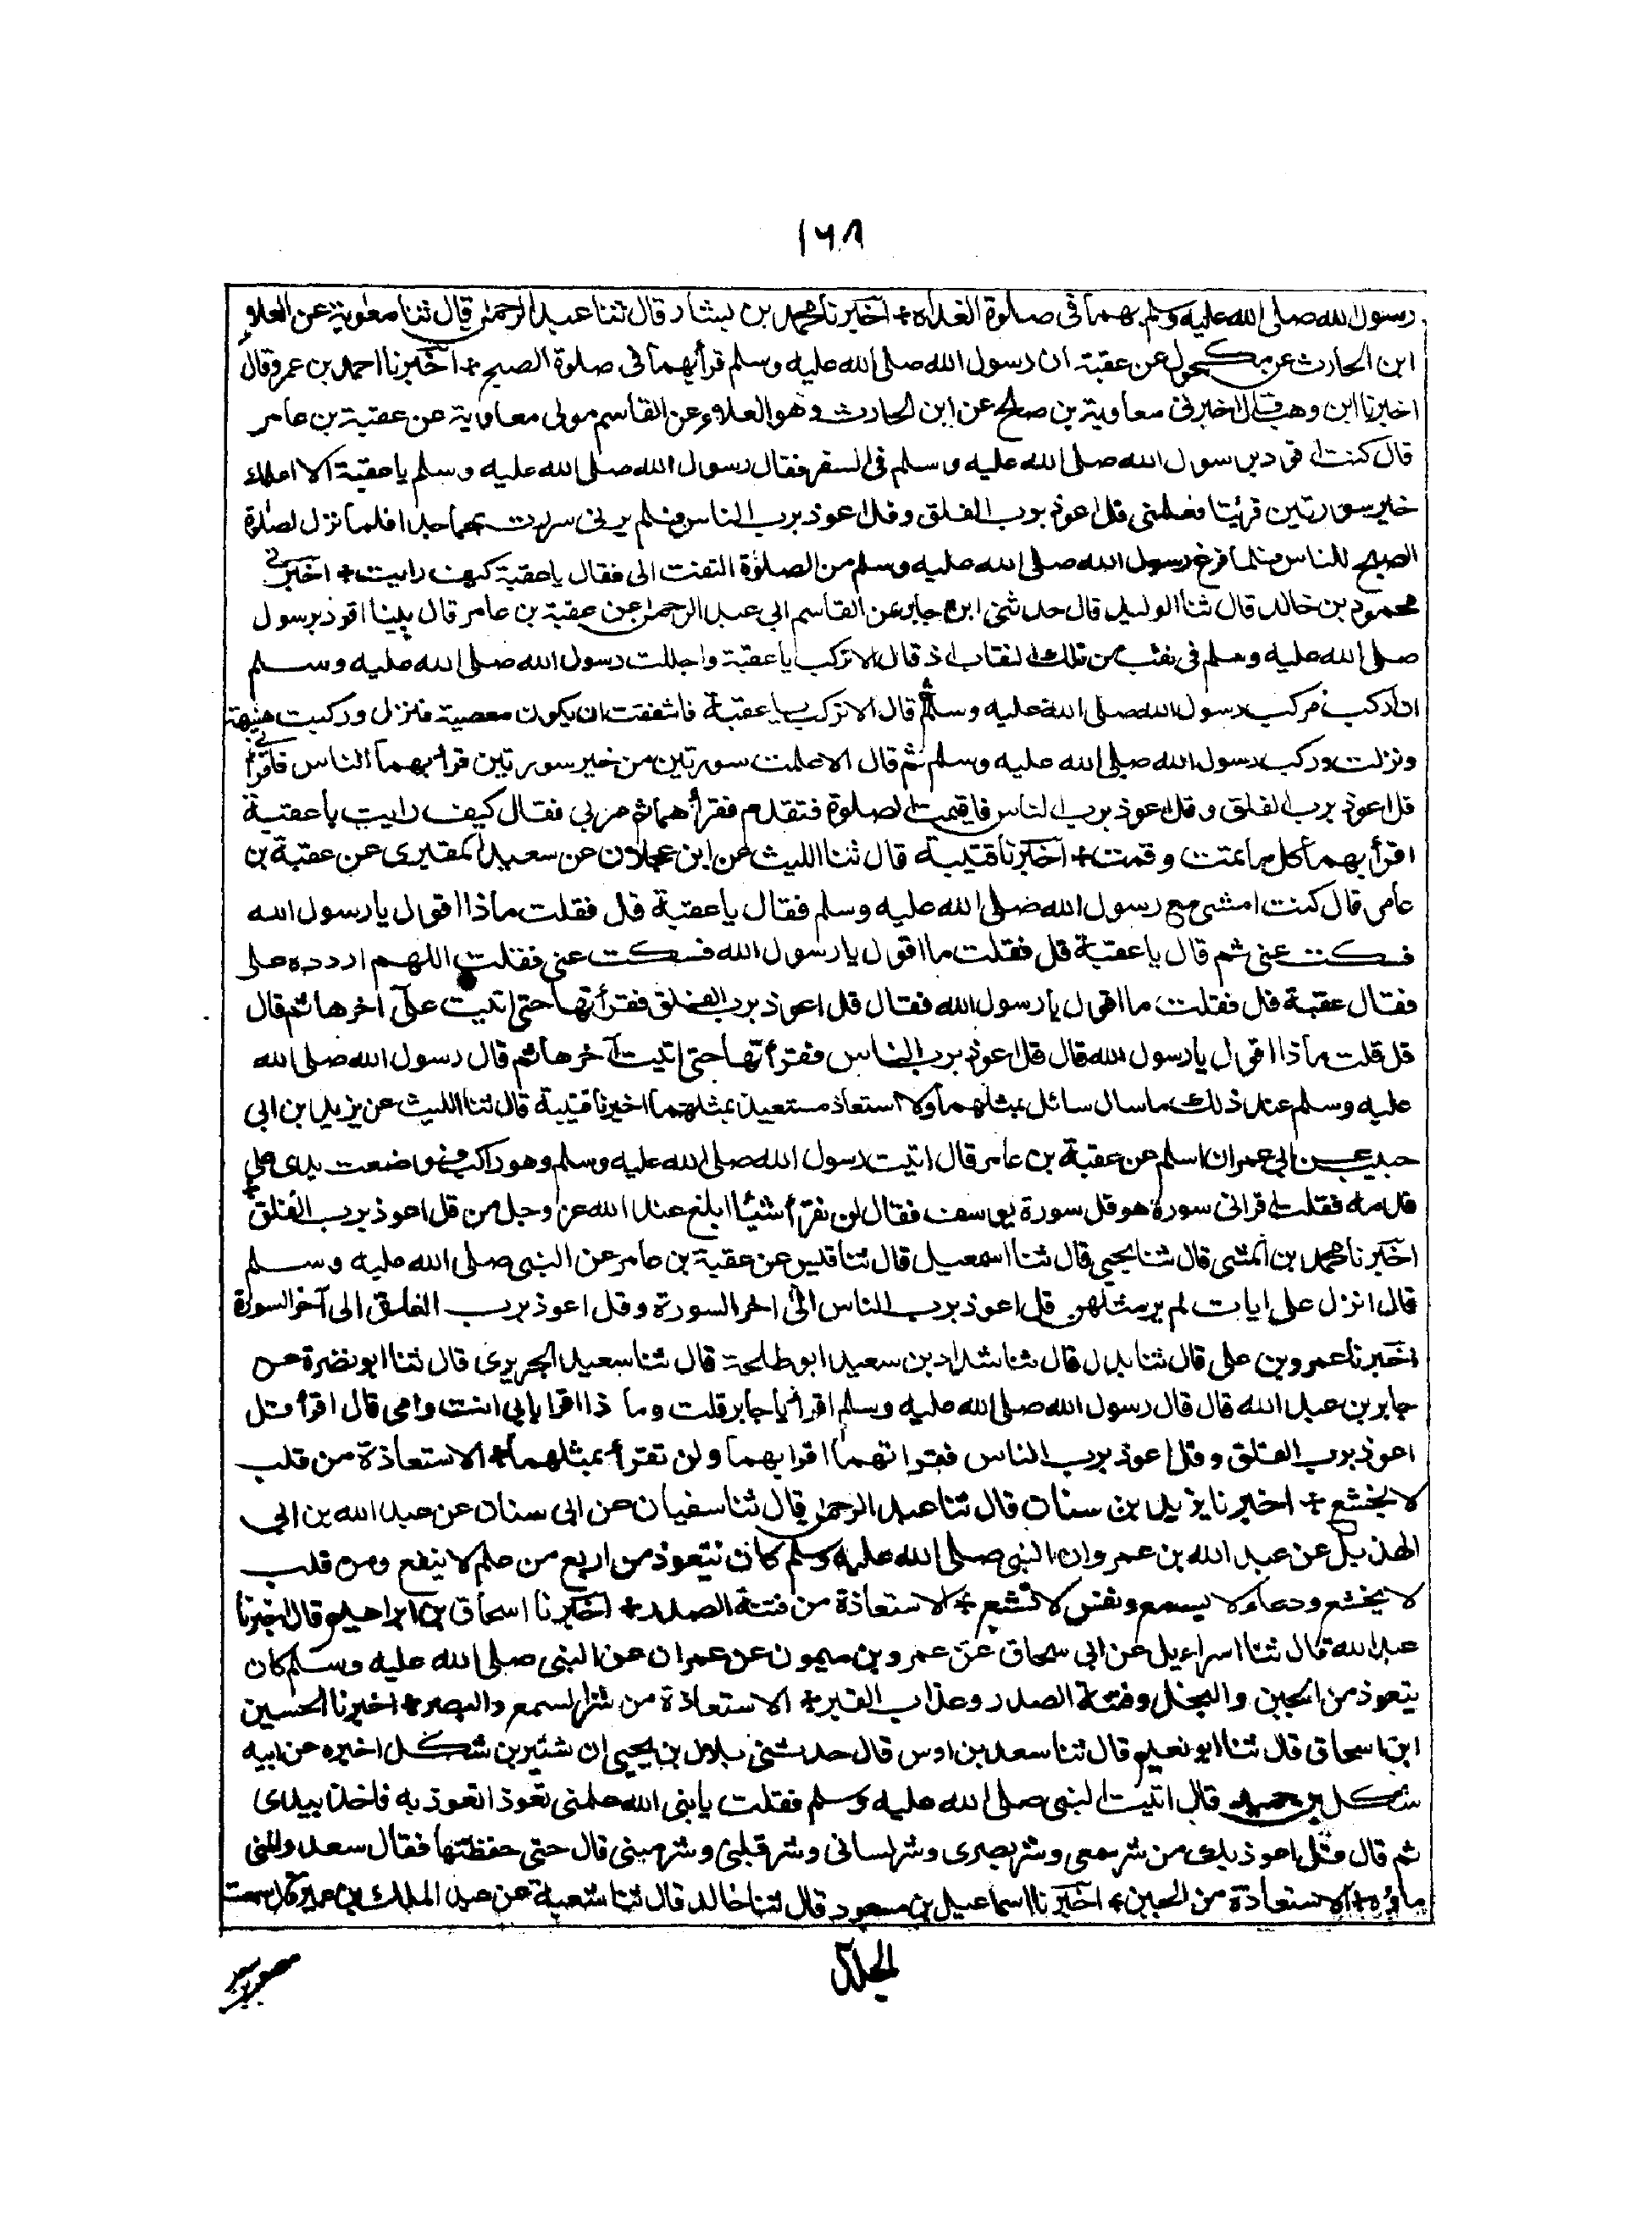 ١٦٨
رسول الله صلى الله عليه وسلم بهما فى صلوة الغداة + اخبرنا محمد بن بشار قال ثنا عبد الرحمن قال ثنا معوية عن العلاء
ابن الحارث عن مكحول عن عقبة ان رسول الله صلى الله عليه وسلم قرأ بهما فى صلوة الصبح + اخبرنا احمد بن عمرو قال
اخبرنا ابن وهب قال اخبرنى معاوية بن صالح عن ابن الحارث وهو العلاء عن القاسم مولى معاوية عن عقبة بن عامر
قال كنت اقود برسول الله صلى الله عليه وسلم فى السفر فقال رسول الله صلى الله عليه وسلم يا عقبة الا اعلمك
خير سورتين قرئيتا فعلمنى قل اعوذ برب الفلق وقل اعوذ برب الناس فلم يرنى سررت بهما جدا فلما نزل لصلوة
الصبح للناس فلما فرغ رسول الله صلى الله عليه وسلم من الصلوة التفت الى فقال يا عقبة كيف رايت + اخبرنى
محمود بن خالد قال ثنا الوليد قال حدثنى ابن جابر عن القاسم ابى عبد الرحمن عن عقبة بن عامر قال بينا اقود برسول
صلى الله عليه وسلم فى نقب من تلك النقاب اذ قال الا تركب يا عقبة واجللت رسول الله صلى الله عليه وسلم
ان اركب مركب رسول الله صلى الله عليه وسلم ثم قال الا تركب يا عقبة فاشفقت ان يكون معصية فنزل وركبت هنيهة
ونزلت وركب رسول الله صلى الله عليه وسلم ثم قال الا علمت سورتين من خير سورتين قرا بهما الناس فاقرأنى
قل اعوذ برب الفلق وقل اعوذ برب الناس فاقيمت الصلوة فتقدم فقرأ هما ثم مر بى فقال كيف رايت يا عقبة
اقرأ بهما كل ما نمت وقمت + اخبرنا قتيبة قال ثنا الليث عن ابن عجلان عن سعيد المقبرى عن عقبة بن
عامر قال كنت امشى مع رسول الله صلى الله عليه وسلم فقال يا عقبة قل فقلت ماذا اقول يا رسول الله
فسكت عنى ثم قال يا عقبة قل فقلت ما اقول يا رسول الله فسكت عنى فقلت اللهم اردده على
فقال عقبة قل فقلت ما اقول يا رسول الله فقال قل اعوذ برب الفلق فقرأتها حتى اتيت على آخرها ثم قال
قل قلت ماذا اقول يا رسول الله قال قل اعوذ برب الناس فقرأتها حتى اتيت آخرها ثم قال رسول الله صلى الله
عليه وسلم عند ذلك ما سال سائل بمثلهما ولا استعاذ مستعيذ بمثلهما اخبرنا قتيبة قال ثنا الليث عن يزيد ابن ابى
حبيب عن ابى عمران اسلم عن عقبة بن عامر قال اتيت رسول الله صلى الله عليه وسلم وهو راكب فوضعت يدى على
قدمه فقلت اقرانى سورة هود سورة يوسف فقال لن تقرأ شيئا ابلغ عند الله عز وجل من قل اعوذ برب الفلق +
اخبرنا محمد بن المثنى قال ثنا يحيى قال ثنا اسمعيل قال ثنا قيس عن عقبة بن عامر عن النبى صلى الله عليه وسلم
قال انزل على ايات لم ير مثلهن قل اعوذ برب الناس الى اخر السورة وقل اعوذ برب الفلق الى آخر السورة
اخبرنا عمرو بن على قال ثنا بدل قال ثنا شداد بن سعيد ابو طلحة قال ثنا سعيد الجريرى قال ثنا ابو نضرة عن
جابر بن عبد الله قال قال رسول الله صلى الله عليه وسلم اقرأ يا جابر قلت وما ذا اقرا بابى انت وامى قال اقرأ قل
اعوذ برب الفلق وقل اعوذ برب الناس فقراتهما اقرا بهما ولن تقرأ بمثلهما + الاستعاذة من قلب
لا يخشع + اخبرنا يزيد بن سنان قال ثنا عبد الرحمن قال ثنا سفيان عن ابى سنان عن عبد الله بن ابى
الهذيل عن عبد الله بن عمرو ان النبى صلى الله عليه وسلم كان يتعوذ من اربع من علم لا ينفع ومن قلب
لا يخشع ودعاء لا يسمع ونفس لا تشبع + الاستعاذة من فتنة الصدر + اخبرنا اسحاق بن ابراهيم قال اخبرنا
عبد الله قال ثنا اسراءيل عن ابى سحاق عن عمرو بن ميمون عن عمران عن النبى صلى الله عليه وسلم كان
يتعوذ من الجبن والبخل وفتنة الصدر وعذاب القبر + الاستعاذة من شر السمع والبصر + اخبرنا الحسين
ابن اسحاق قال ثنا ابو نعيم قال ثنا سعد بن اوس قال حدثنى بلال بن يحيى ان شتير بن شكل اخبره عن ابيه
شكل بن حميد قال اتيت النبى صلى الله عليه وسلم فقلت يا نبى الله علمنى تعوذا اتعوذ به فاخذ بيدى
ثم قال قل اعوذ بك من شر سمعى وشر بصرى وشر لسانى وشر قلبى وشر منيى قال حتى حفظتها فقال سعد والمنى
ماؤه + الاستعاذة من الجبن + اخبرنا اسماعيل بن مسعود قال ثنا خالد قال ثنا شعبة عن عبد الملك بن عمير قال سمعت